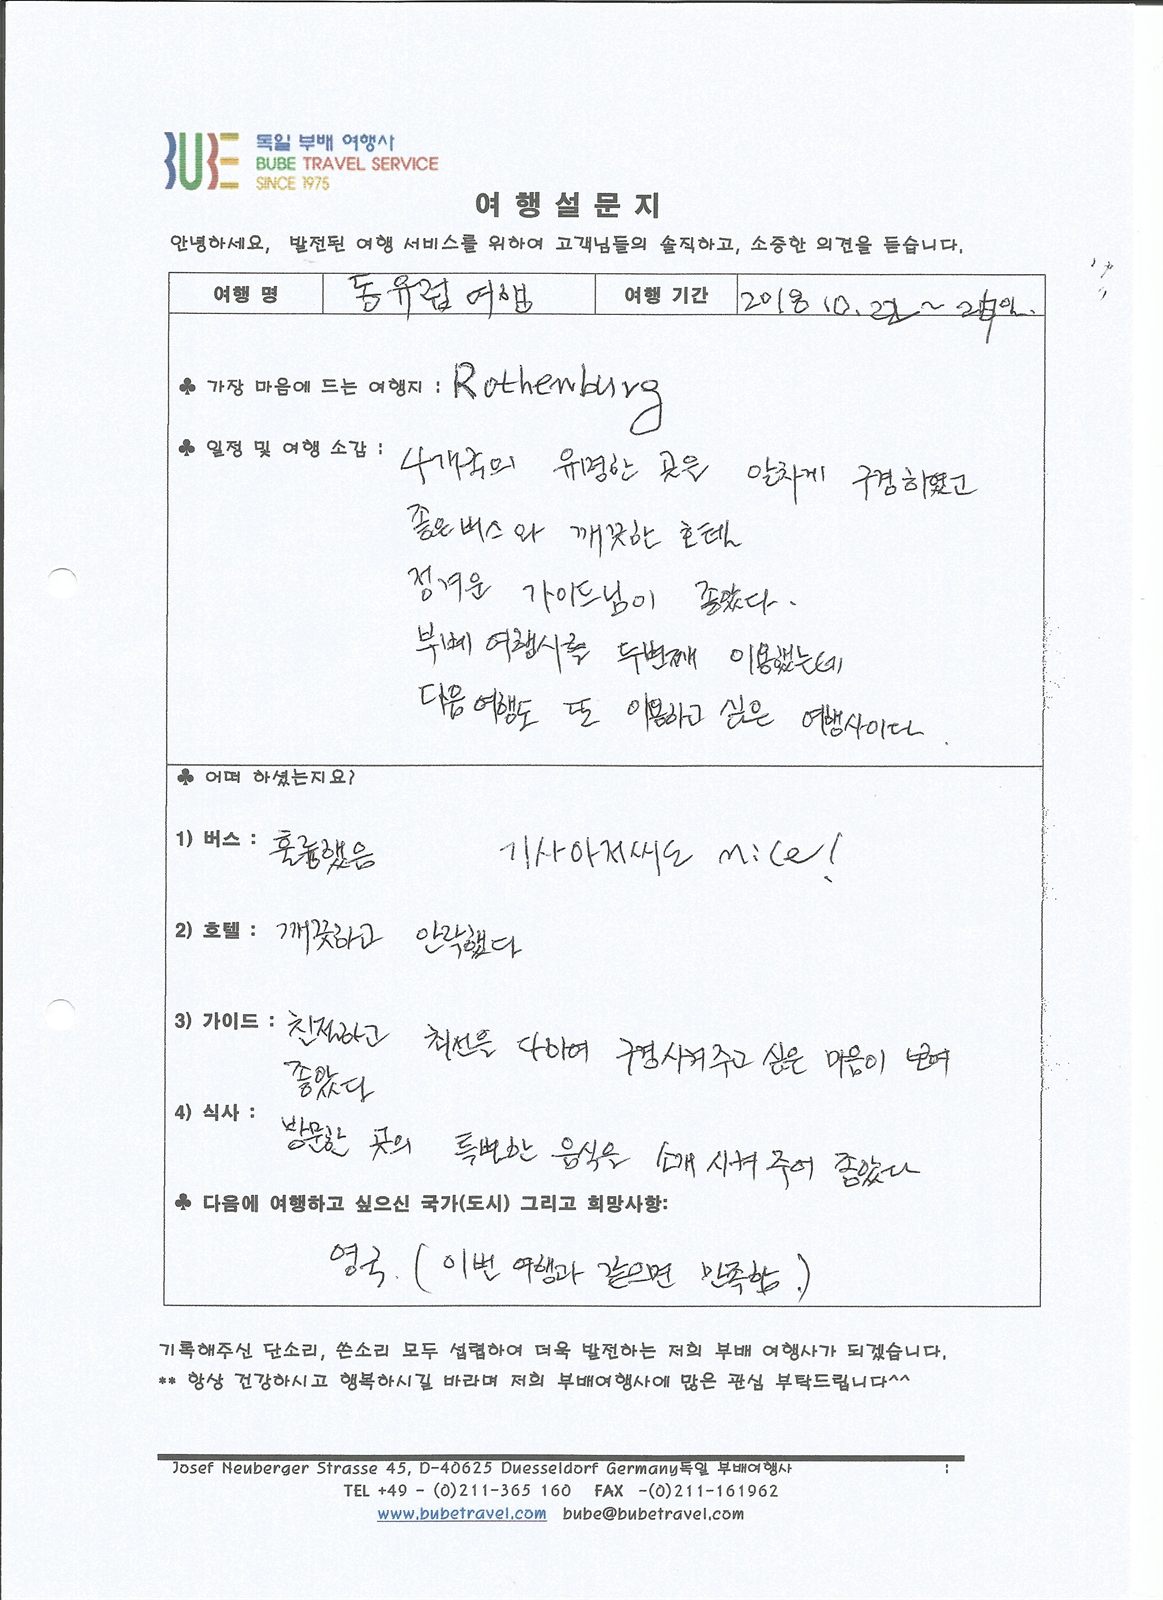 BUBE 독일 부배 여행사
BUBE TRAVEL SERVICE
SINCE 1975
여 행 설 문 지
안녕하세요, 발전된 여행 서비스를 위하여 고객님들의 솔직하고, 소중한 의견을 듣습니다.
여행 명 동유럽 여행 여행 기간 2018 10. 22 ~
♣ 가장 마음에 드는 여행지 : Rothenburg
♣ 일정 및 여행 소감 : 4개국의 유명한 곳을 알차게 구경하였고
좋은버스와 깨끗한 호텔
정겨운 가이드님이 좋았다.
부베 여행사를 두번째 이용했는데
다음여행도 또 이용하고 싶은 여행사이다.
♣ 어떠 하셨는지요?
1) 버스 : 훌륭했음 기사아저씨도 nice!
2) 호텔 : 깨끗하고 안락했다
3) 가이드 : 친절하고 최선을 다하여 구경시켜주고 싶은 마음이 보여
좋았다
4) 식사 : 방문한 곳의 특별한 음식을 소개 시켜 주어 좋았다
♣ 다음에 여행하고 싶으신 국가(도시) 그리고 희망사항:
영국. (이번 여행과 같으면 만족함.)
기록해주신 단소리, 쓴소리 모두 섭렵하여 더욱 발전하는 저희 부배 여행사가 되겠습니다.
** 항상 건강하시고 행복하시길 바라며 저희 부배여행사에 많은 관심 부탁드립니다^^
Josef Neuberger Strasse 45, D-40625 Duesseldorf Germany독일 부배여행사
TEL +49 - (0)211-365 160 FAX -(0)211-161962
www.bubetravel.com bube@bubetravel.com